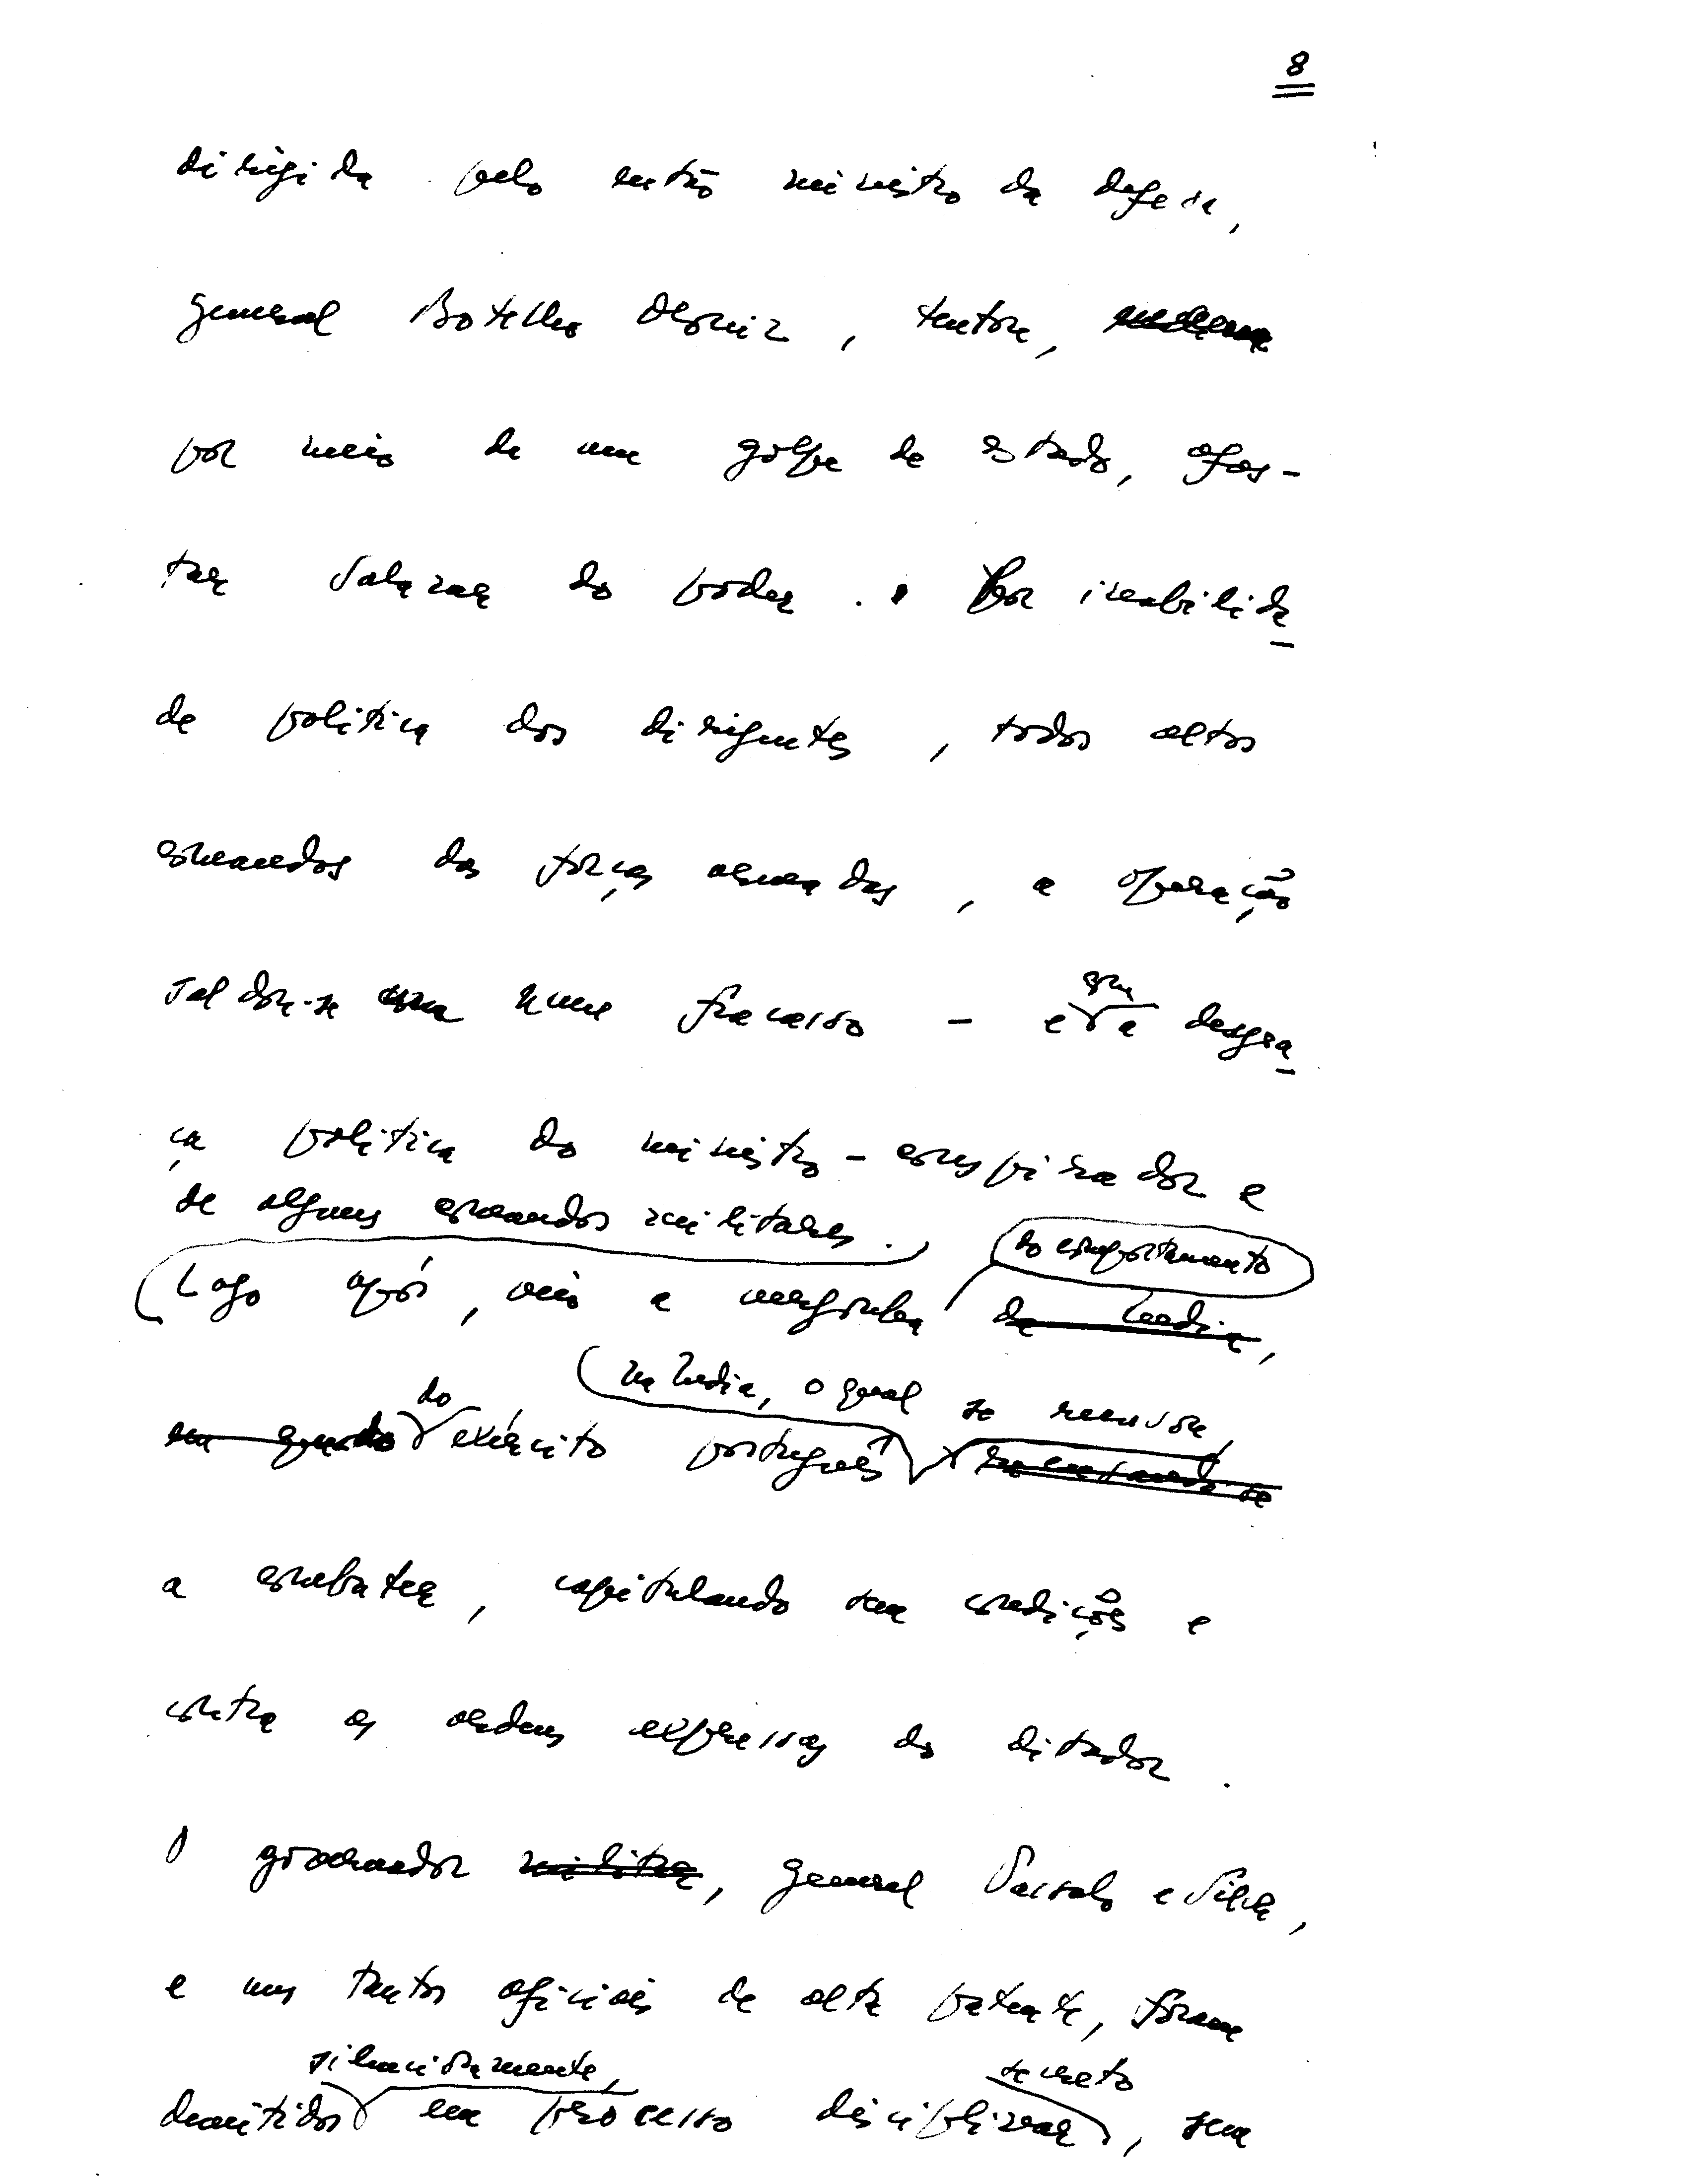 8
dirigida pelo então ministro da defesa,
general Botelho Moniz, tentou,
por meio de um golpe de estado, afas-
tar Salazar do poder. Por inabilida_
de política dos dirigentes, todos altos
comandos das forças armadas, a operação
saldou-se num fracasso - e com a desgra_
ça política do ministro-conspirador e
de alguns comandos militares.
do comportamento
Logo após, veio a vergonha da India,
na India, o qual se recusou,
do
em quando exército português recusando-se
a combater, capitulando sem condições e
contra as ordens expressas do ditador.
O governador militar, general Vassalo e Silva,
e uns tantos oficiais de alta patente, foram
silenciosamente, secreto
demitidos em processo disciplinar, sem